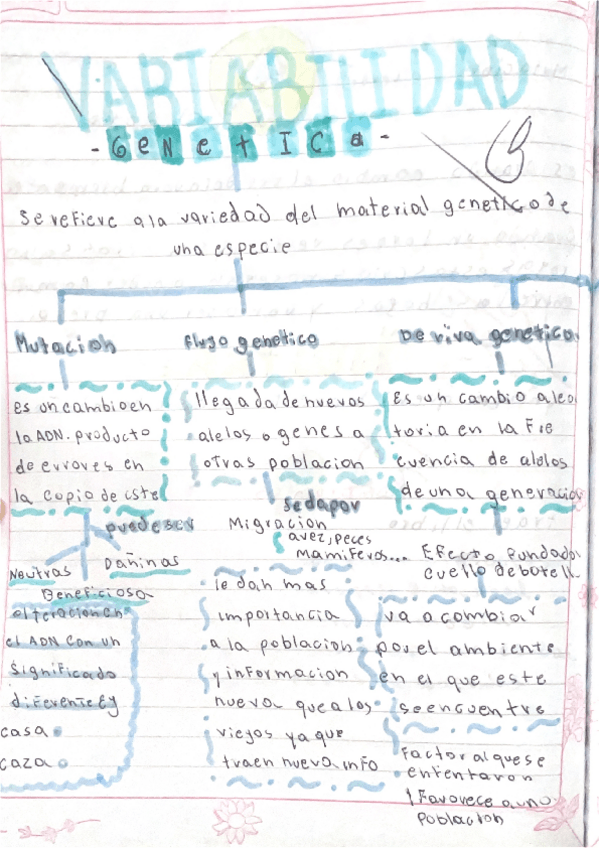 VARIABILIDAD
- Genetica -
se refiere a la variedad del material genetico de
una especie
Mutacion
es un cambio en
la ADN. producto
de errores en
la copio de este
puede ser
Neutras
Dañinas
Beneficiosa
alteracion en
el ADN con un
significado
diferente Ej
casa
caza
flujo genetico
llegada de nuevos
alelos o genes a
otras poblacion
se da por
Migracion
avez, peces
Mamiferos...
le dan mas
importancia
a la poblacion
y informacion
nueva que a los
viejos ya que
traen nueva info
Deriva genetico
Es un cambio aleo
toria en la Fre
cuencia de alolos
de una generacion
Efecto Fundador
cuello de botell
va a combiar
por el ambiente
en el que este
se encuentre
Factor al que se
enfentaron
Favorece a uno
poblacion